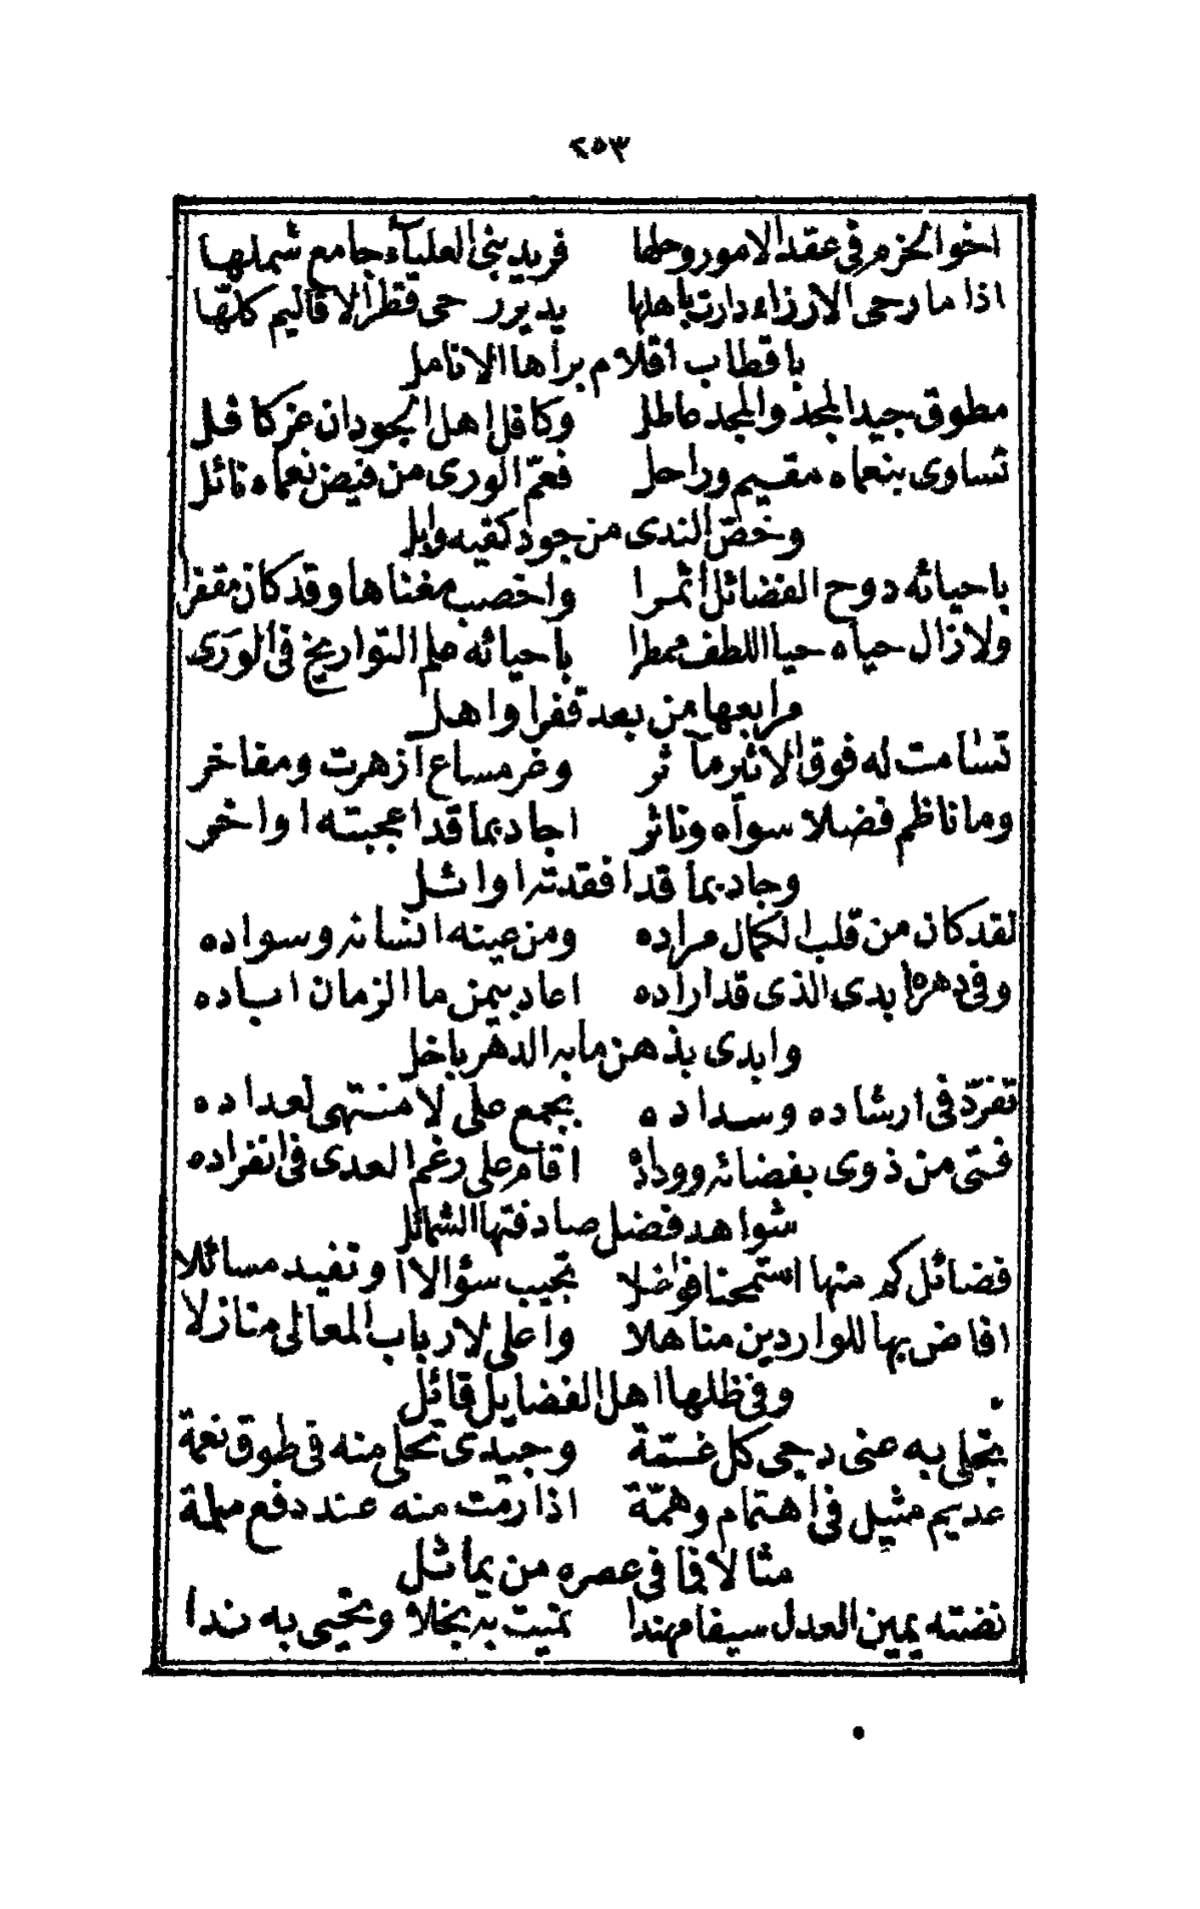 ٢٥٣
اخوا الحزم فى عقد الامور وحلها فريد بنى العلياء جامع شملها
اذا ما رحى الارزاء دارت باهلها يدير رحى قطر الاقاليم كلّها
باقطاب اقلام براها الانامل
مطوق جيد المجد والمجد عاطل وكافل اهل الجود ان عز كافل
تساوى بنعماه مقيم وراحل فعمّ الورى من فيض نعماه نائل
وخصّ الندى من جود كفيه وابل
باحيائه دوح الفضائل أثمرا واخصب مغناها وقد كان مقفرا
ولا زال حياه حيا اللطف ممطرا باحيائه علم التواريخ فى الورى
مرابعها من بعد قفر اواهل
تسامت له فوق الاثير مآثر وغر مساع ازهرت ومفاخر
وما ناظم فضلا سواه وناثر اجاد بما قد اعجبته اواخر
وجاد بما قد افقدته اوائل
لقد كان من قلب الكمال مراده ومن عينه انسانه وسواده
وفى دهره ابدى الذى قد اراده اعاد بيمن ما الزمان اباده
وابدى بذهن ما به الدهر باخل
تفرّد فى ارشاده وسداده بجمع على لا منتهى لعداده
فتى من ذوى بفضائه ووداده اقام على رغم العدى فى انفراده
شواهد فضل صادفتها الشمائل
فضائل كم منها استمحنا فواضلا تجيب سؤالا او تفيد مسائلا
افاض بها للواردين مناهلا واعلى لارباب المعالى منازلا
وفى ظلها اهل الفضايل قائل
تجلى به عنى دجى كل غمّة وجيدى تحلى منه فى طوق نعمة
عديم مثيل فى اهتمام وهمّة اذا رمت منه عند دفع ملمة
مثالا فما فى عصره من يماثل
نضته يمين العدل سيفا مهندا تميت به بخلا ويحيى به ندا